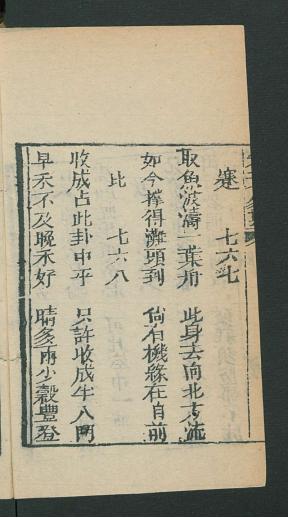 遼 七六七
取魚波濤一葉舟 此身去向北方流
如今撑得灘頭到 尚有機緣在目前
比 七六八
收成占此卦中平 只許收成牛八門
早禾不及晚禾好 晴多雨少穀豐登